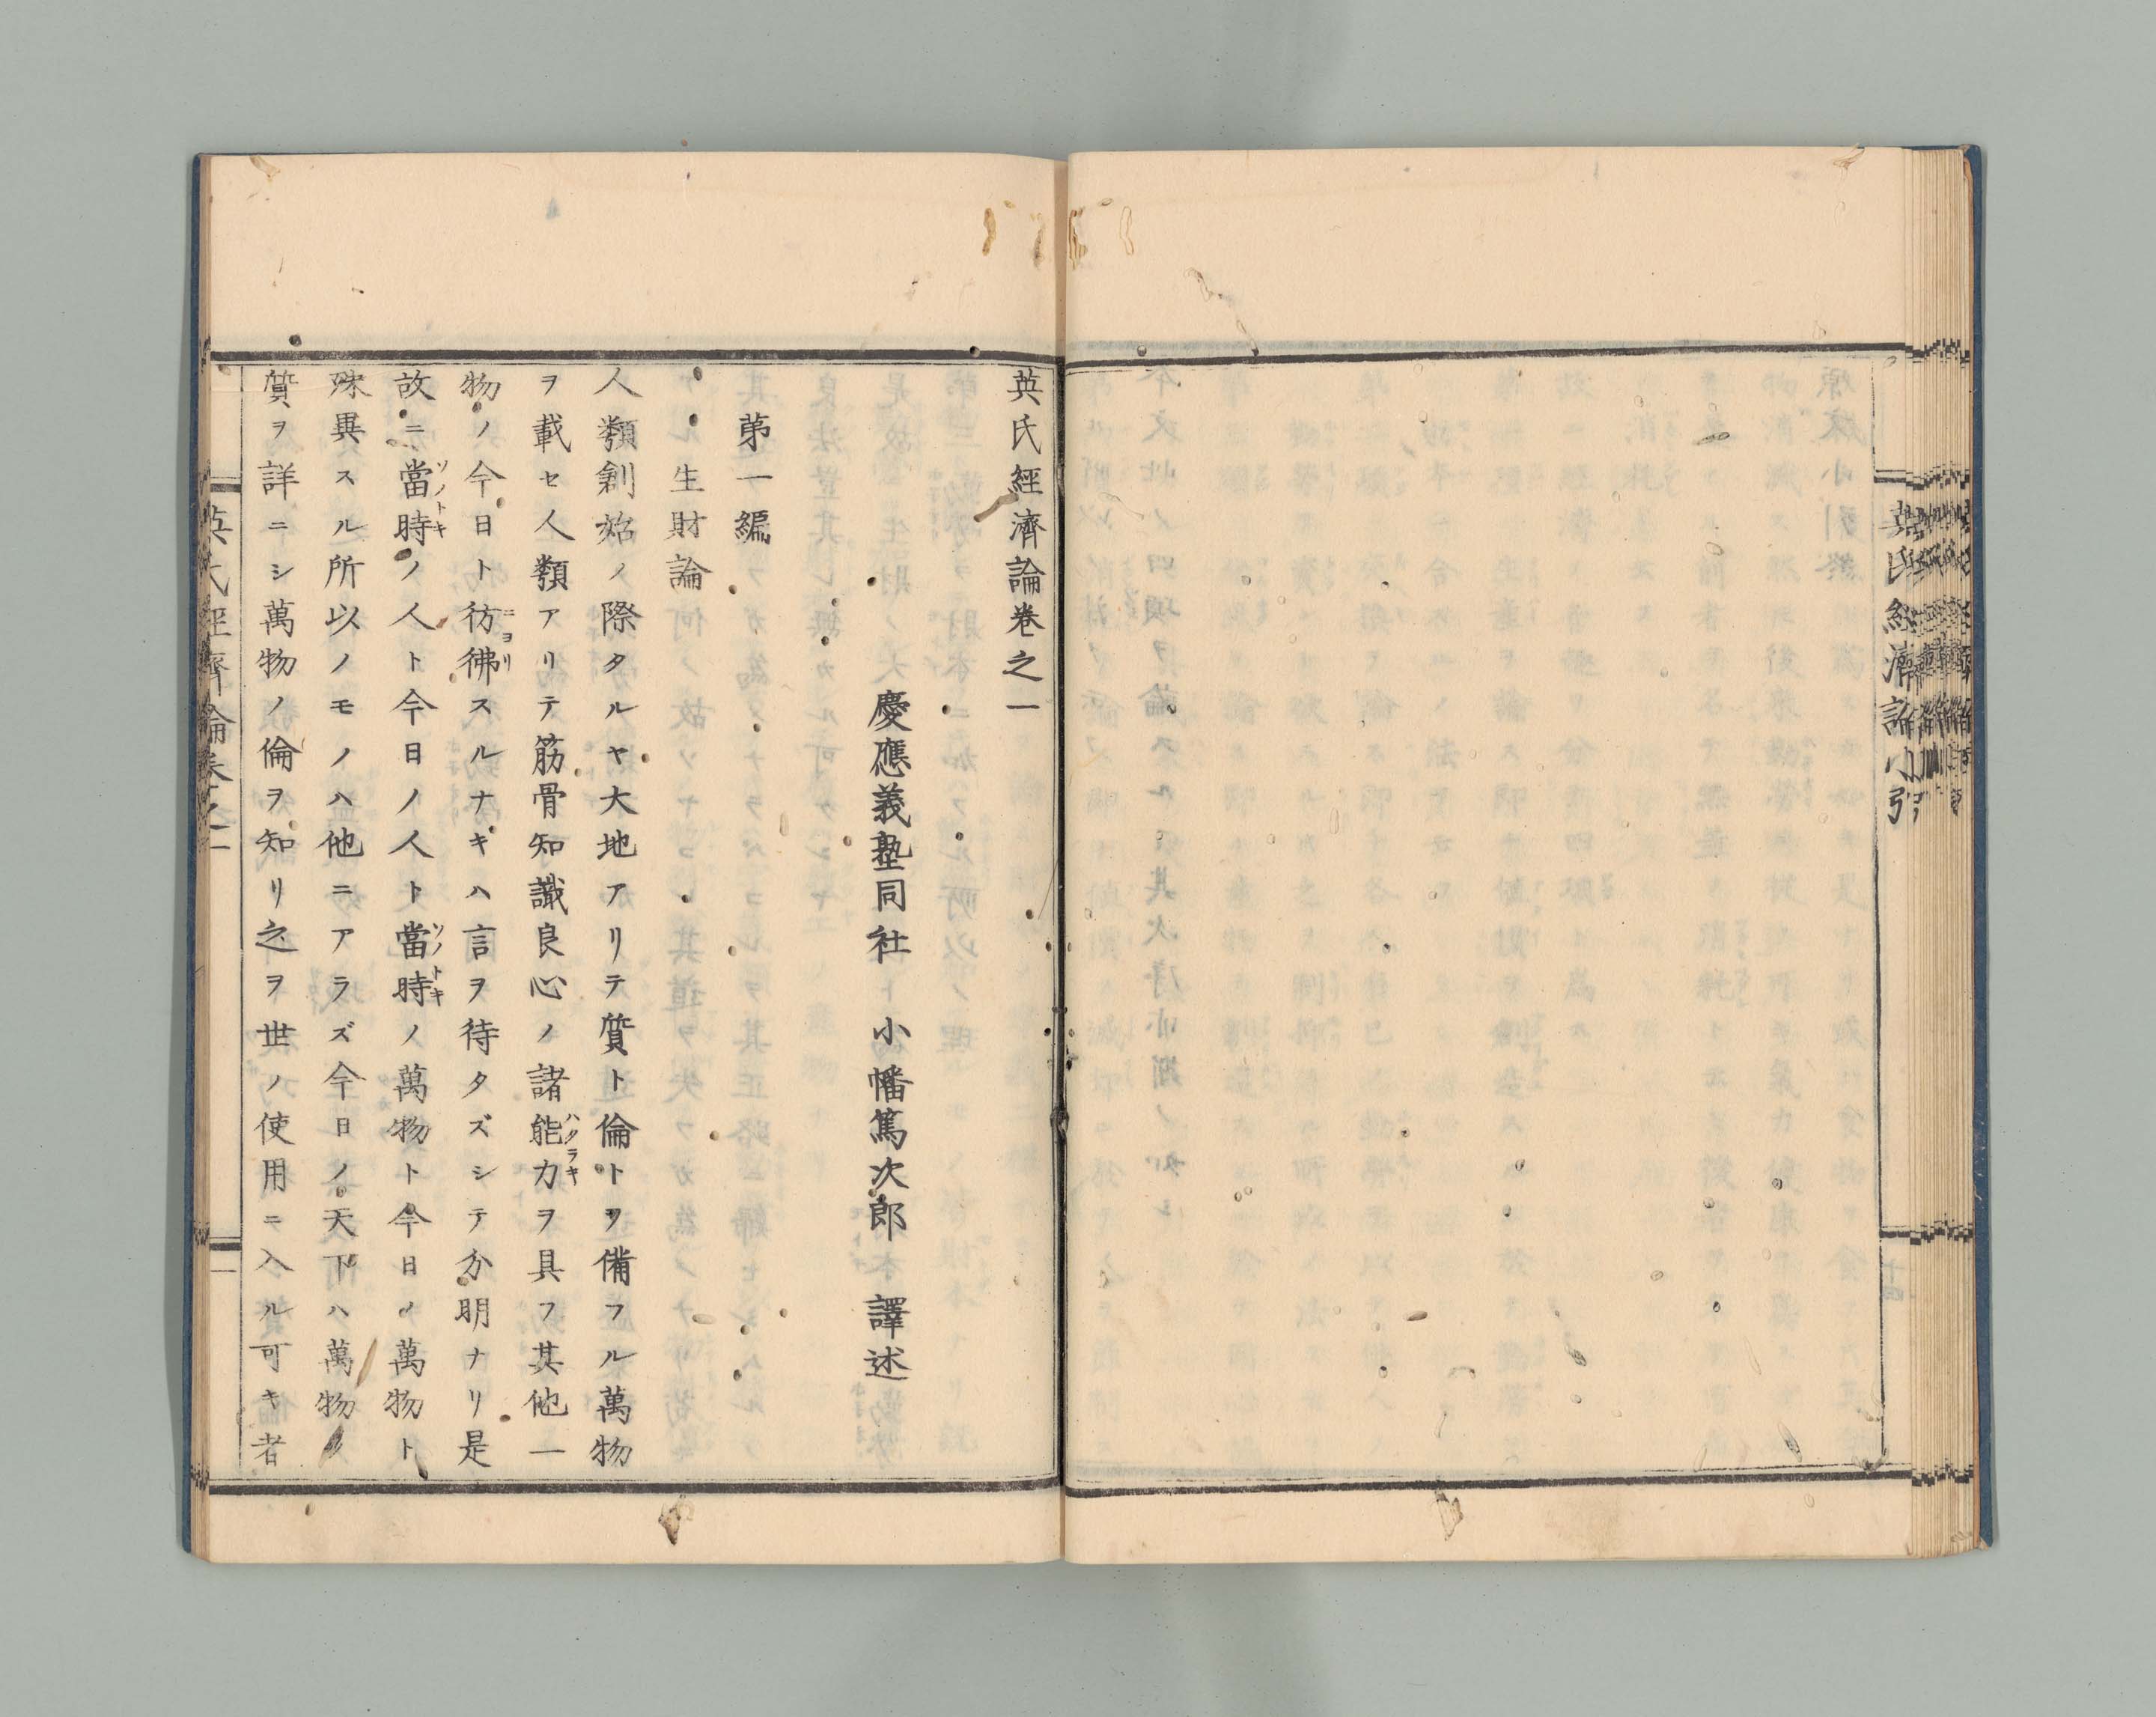 英氏經濟論小引
英氏經濟論卷之一
慶應義塾同社　小幡篤次郎　譯述
苐一編
生財論
人類創始ノ際タルヤ大地アリテ質ト倫トヲ備フル萬物
ヲ載セ人類アリテ筋骨知識良心ノ諸能力ハタラキヲ具フ其他一
物ノ今日ト彷彿ニヨリスルナキハ言ヲ待タズシテ分明ナリ是
故ニ當時ソノトキノ人ト今日ノ人ト當時ソノトキノ萬物ト今日ノ萬物ト
殊異スル所以ノモノハ他ニアラズ今日ノ天下ハ萬物ノ
質ヲ詳ニシ萬物ノ倫ヲ知リ之ヲ世ノ使用ニ入ル可キ者
英氏經濟論卷之一
一